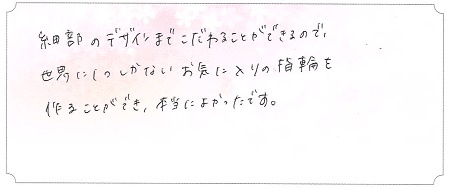 細部のデザインまでこだわることができるので、
世界に1つしかないお気に入りの指輪を
作ることができ、本当によかったです。